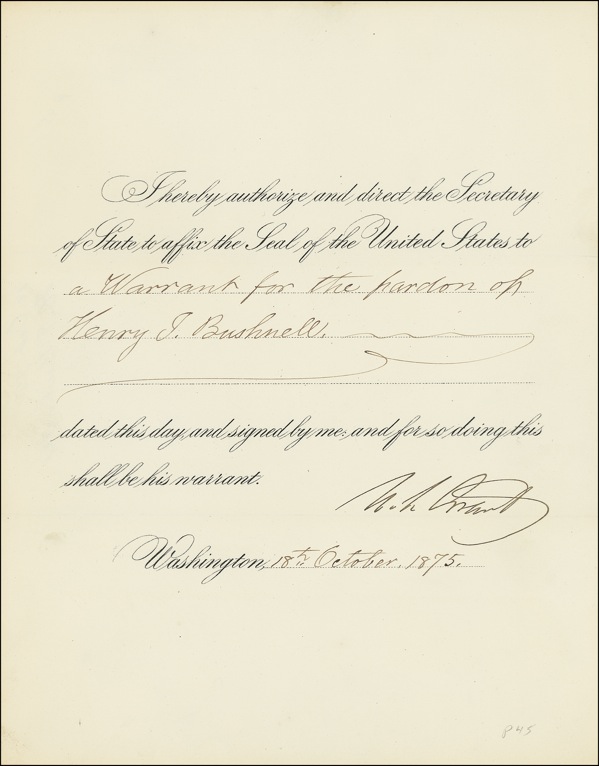 I hereby authorize and direct the Secretary
of State to affix the Seal of the United States to
a Warrant for the pardon of
Henry J. Bushnell.
dated this day, and signed by me: and for so doing this
shall be his warrant.
U. S. Grant
Washington, 18th October, 1875.
P45